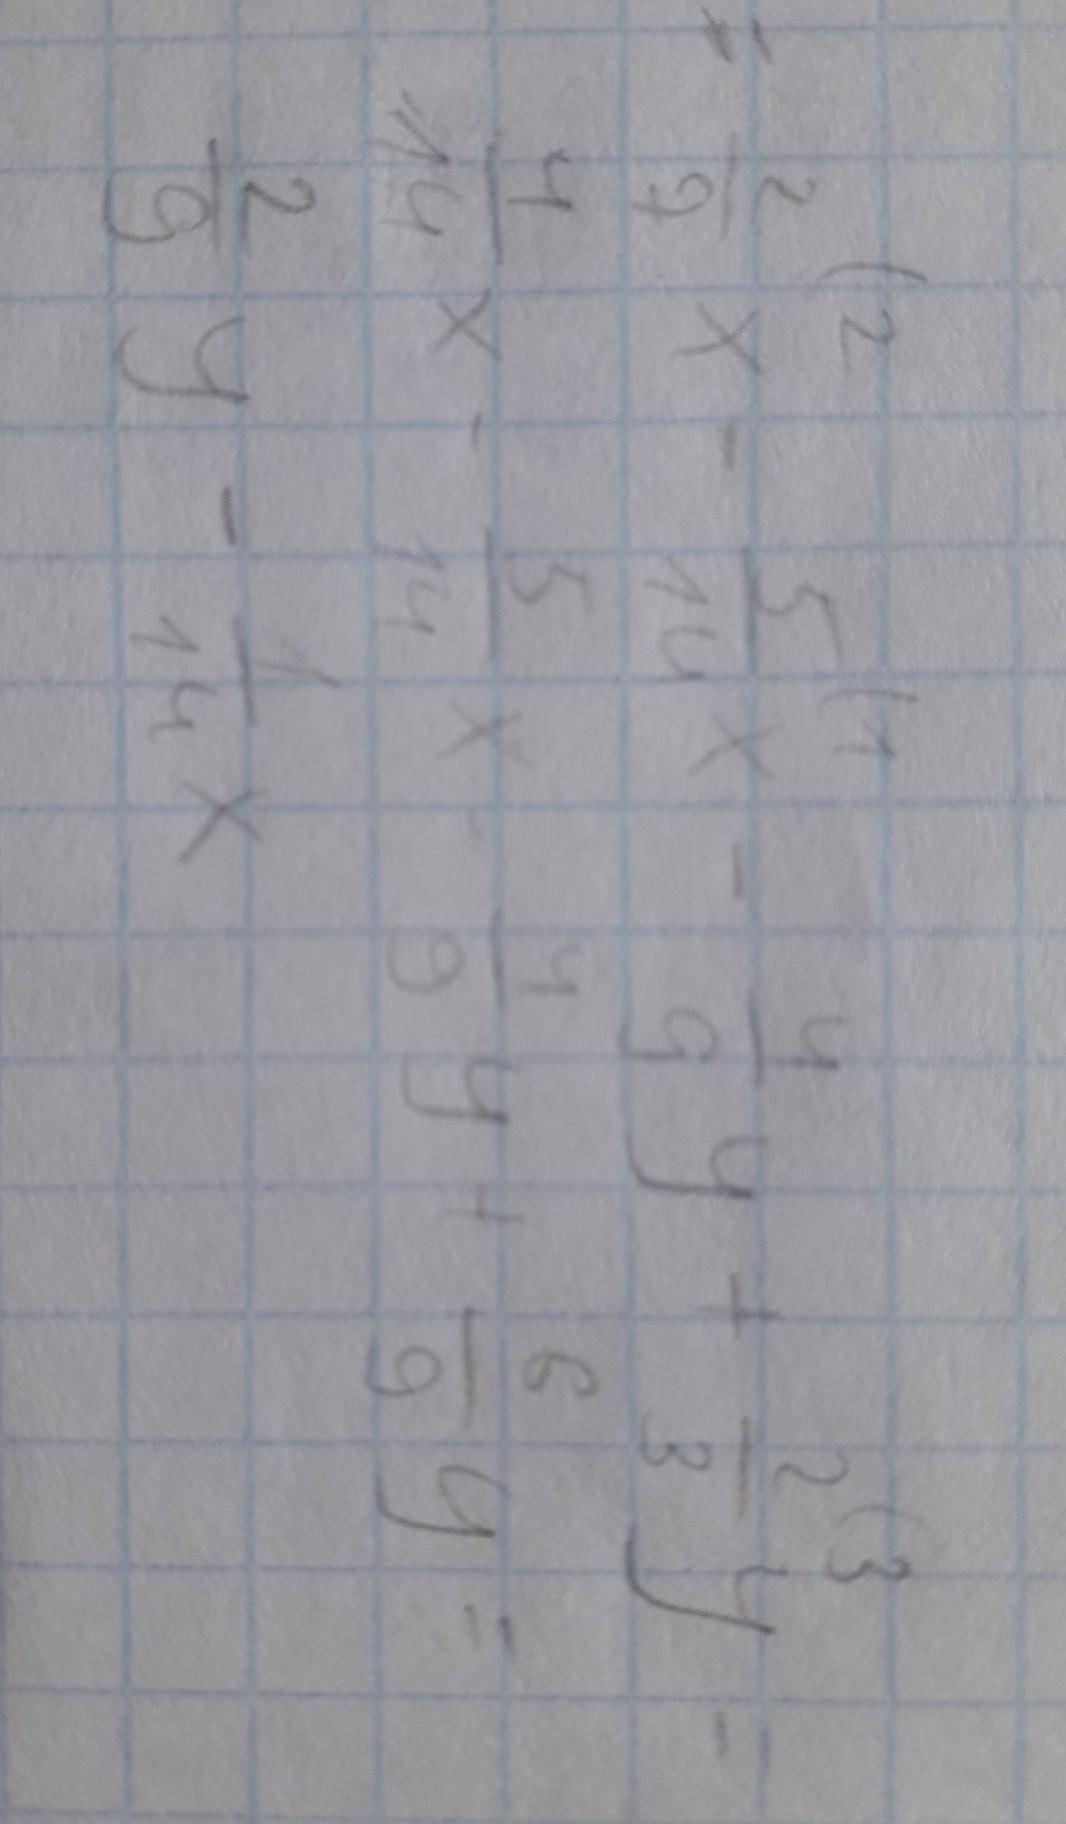 = 2/7 (2 x - 5/14 (1 x - 4/9 y + 2/3 (3 y =
4/14 x - 5/14 x - 4/9 y + 6/9 y =
2/9 y - 1/14 x